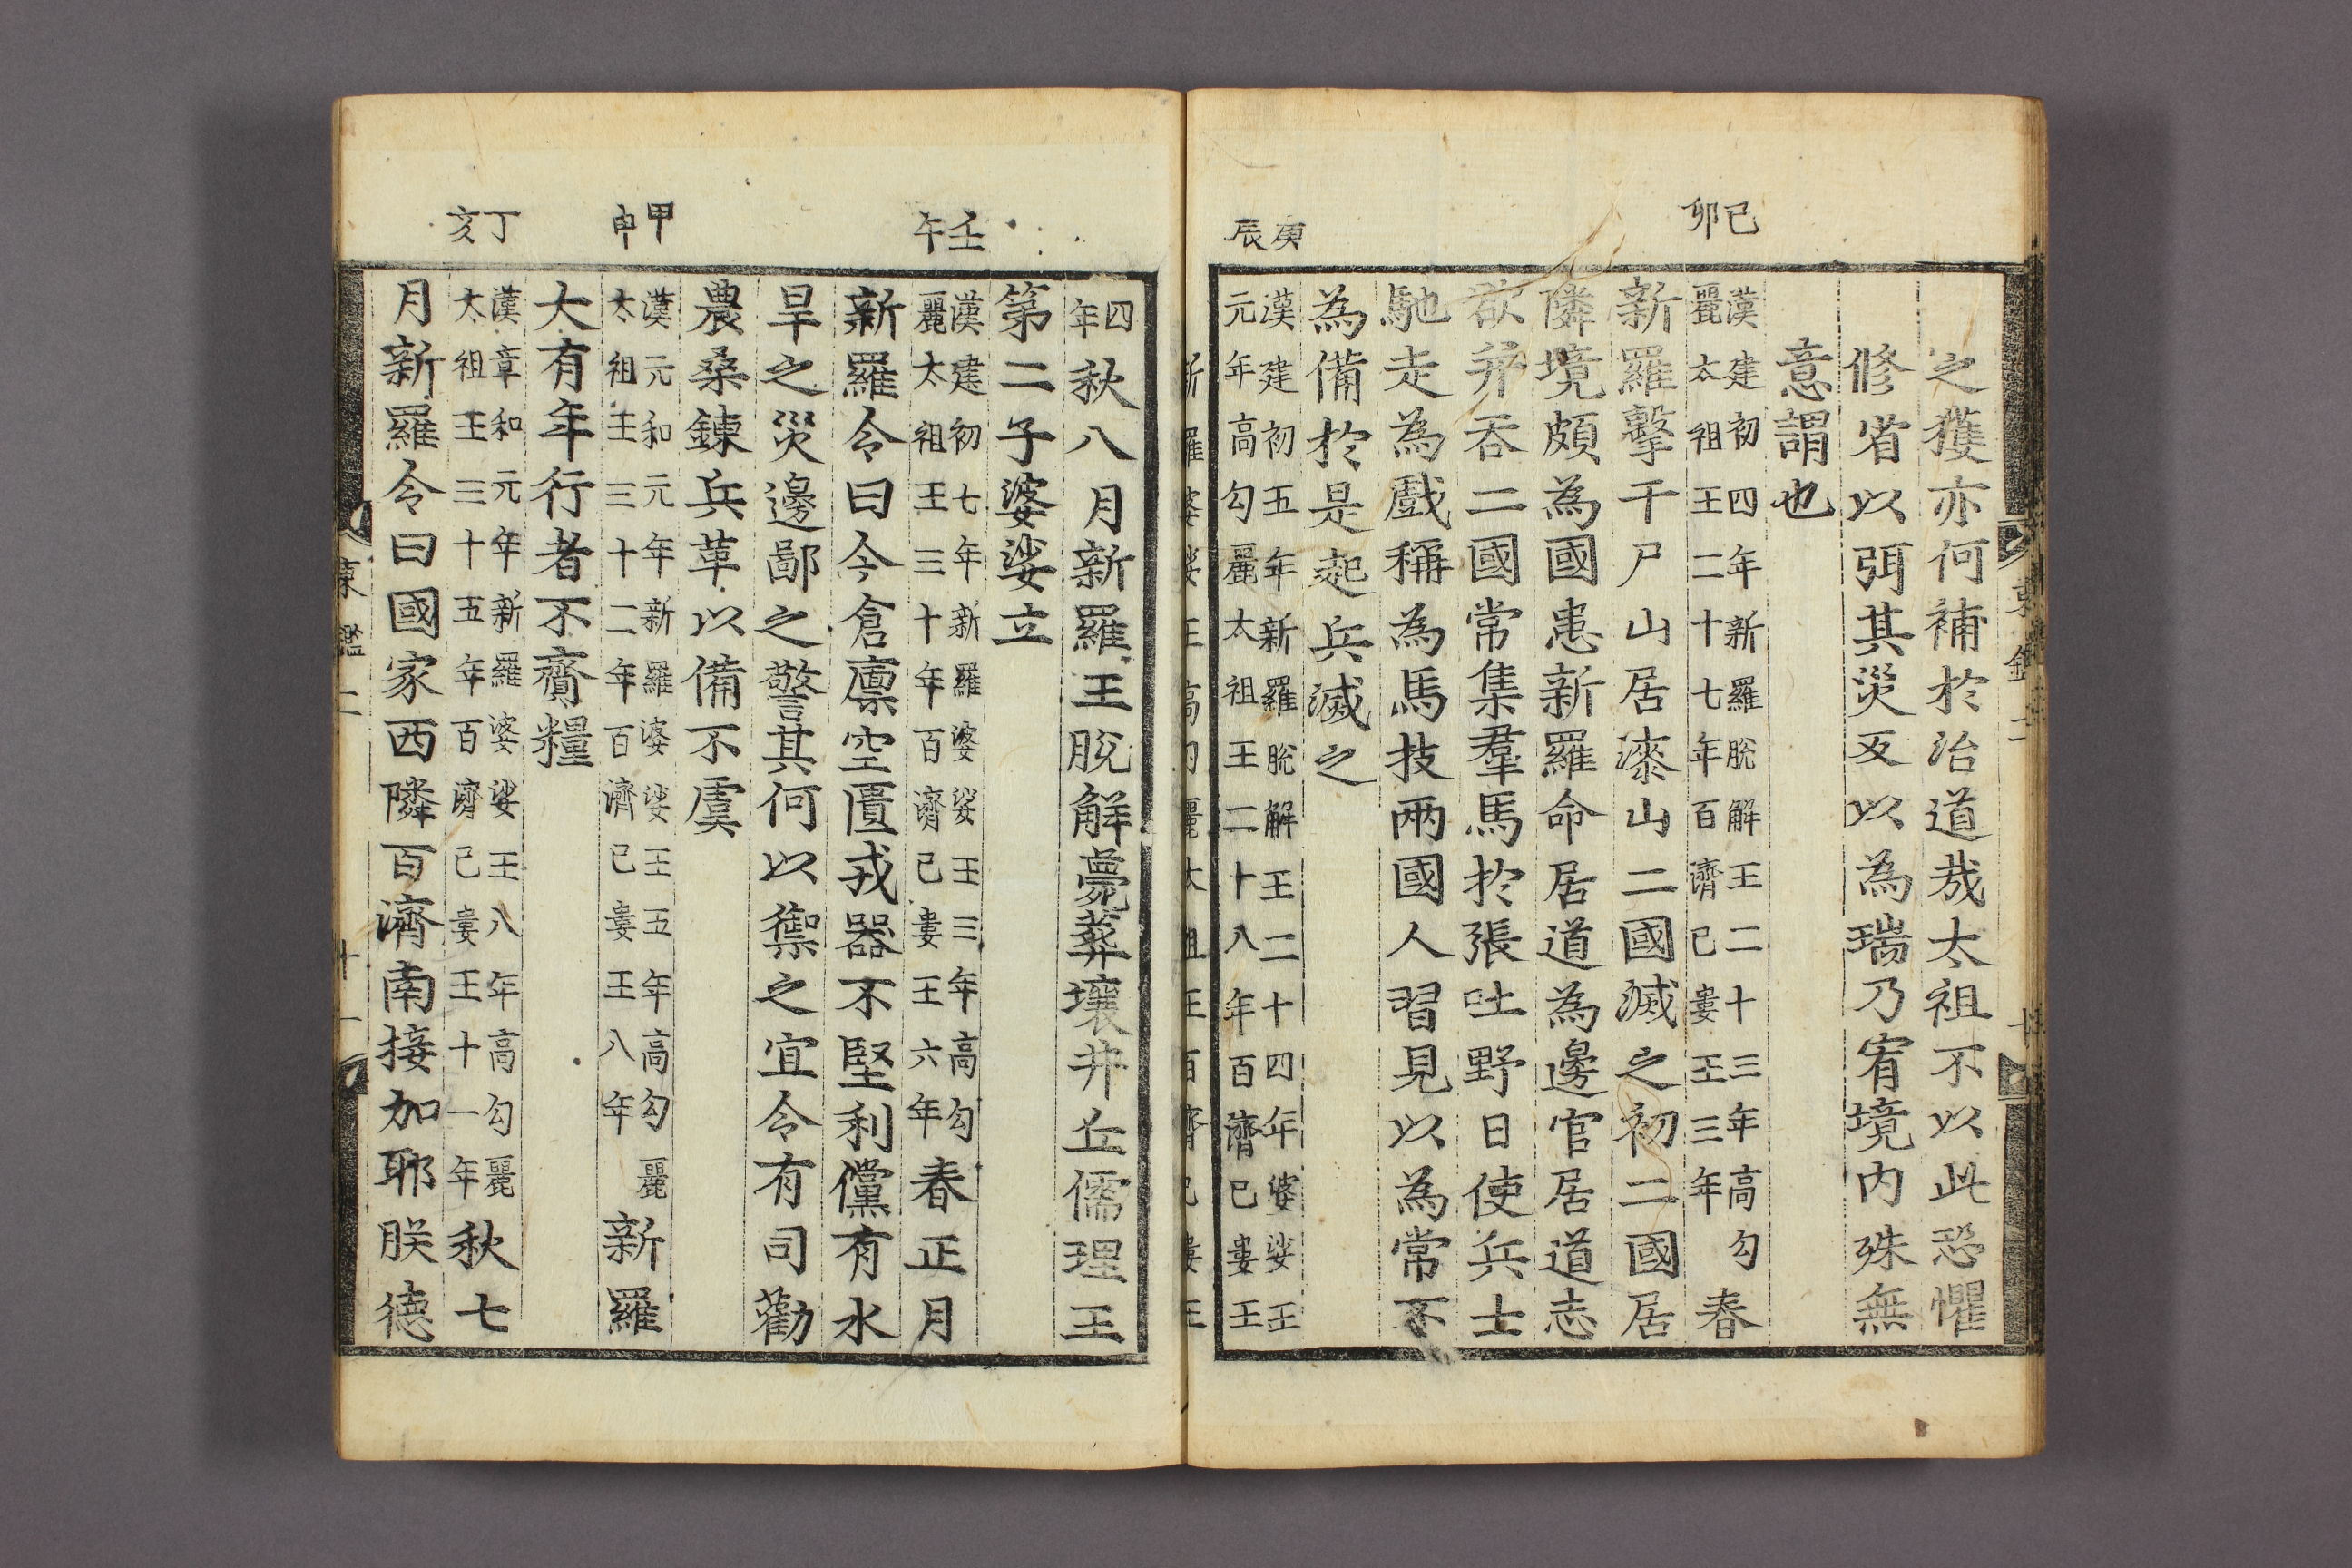 之獲亦何補於治道㦲太祖不以此恐懼
修省以弭其災反以為瑞乃宥境內殊無
意謂也
己卯
漢建初四年新羅脫解王二十三年高勾
麗太祖王二十七年百濟已婁王三年
春
新羅擊干尸山居漆山二國滅之初二國居
隣境頗為國患新羅命居道為邊官居道志
欲并吞二國常集羣馬於張吐野日使兵士
馳走為戲稱為馬技兩國人習見以為常不
為備於是起兵滅之
庚辰
漢建初五年新羅脫解王二十四年婆娑王
元年高勾麗太祖王二十八年百濟已婁王
四年
秋八月新羅王脫解薨葬壤井丘儒理王
第二子婆娑立
壬午
漢建初七年新羅婆娑王三年高勾
麗太祖王三十年百濟已婁王六年
春正月
新羅令曰今倉廩空匱戎器不堅利儻有水
旱之災邊鄙之警其何以禦之宜令有司勸
農桑鍊兵革以備不虞
甲申
漢元和元年新羅婆娑王五年高勾麗
太祖王三十二年百濟已婁王八年
新羅
大有年行者不齎糧
丁亥
漢章和元年新羅婆娑王八年高勾麗
太祖王三十五年百濟已婁王十一年
秋七
月新羅令曰國家西隣百濟南接加耶朕德
東鑑二
十一